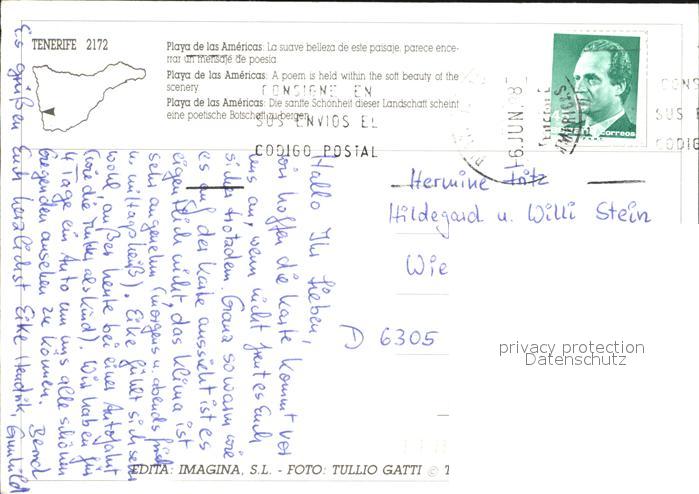 TENERIFE 2172
Playa de las Américas: La suave belleza de este paisaje, parece ence-
rrar un mensaje de poesía
Playa de las Américas: A poem is held within the soft beauty of the
scenery
Playa de las Américas: Die sanfte Schönheit dieser Landschaft scheint
eine poetische Botschaft zu bergen
CONSIGNE EN
SUS ENVIOS EL
CODIGO POSTAL
6 JUN. 8
AMERICAS
correos
CONS
SUS E
CODIG
Hermine
Hildegard u. Willi Stein
Wie
D 6305
Hallo Ihr Lieben,
wir hoffen die Karte kommt vor
uns an, wenn nicht freut es Euch
sicher trotzdem. Ganz so warm wie
es auf der Karte aussieht ist es
eigentlich nicht, das Klima ist
sehr angenehm (morgens u. abends frisch
u. mittags heiß). Eike fühlt sich sehr
wohl, außer heute bei einer Autofahrt
(wie die Mutter als Kind). Wir haben für
4 Tage ein Auto um uns alle schönen
Gegenden ansehen zu können.
Es grüßen Euch herzlichst Eike Hendrik, Gunhild
Bernd
EDITA: IMAGINA, S.L. - FOTO: TULLIO GATTI © T
privacy protection
Datenschutz